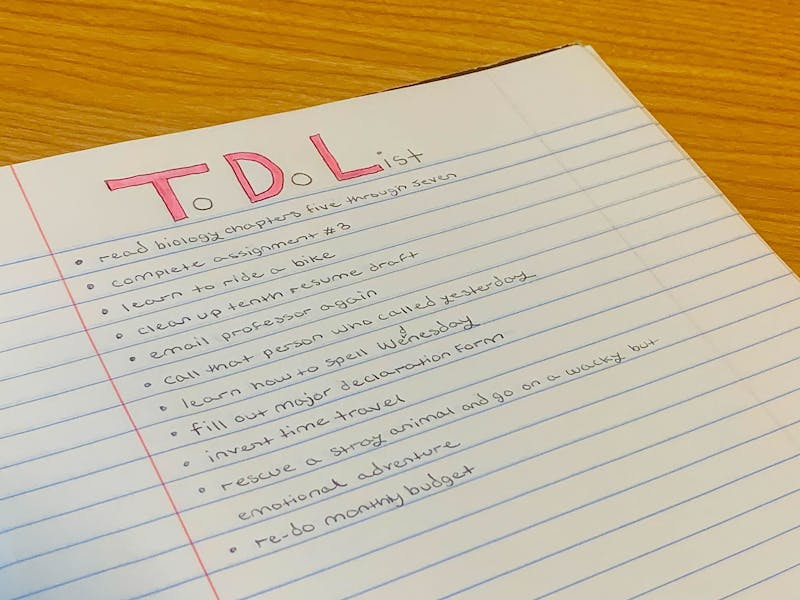 To Do List
• read biology chapters five through seven
• complete assignment #3
• learn to ride a bike
• clean up tenth resume draft
• email professor again
• call that person who called yesterday
• learn how to spell Wednesday
• fill out major declaration form
• invent time travel
• rescue a stray animal and go on a wacky but
emotional adventure
• re-do monthly budget